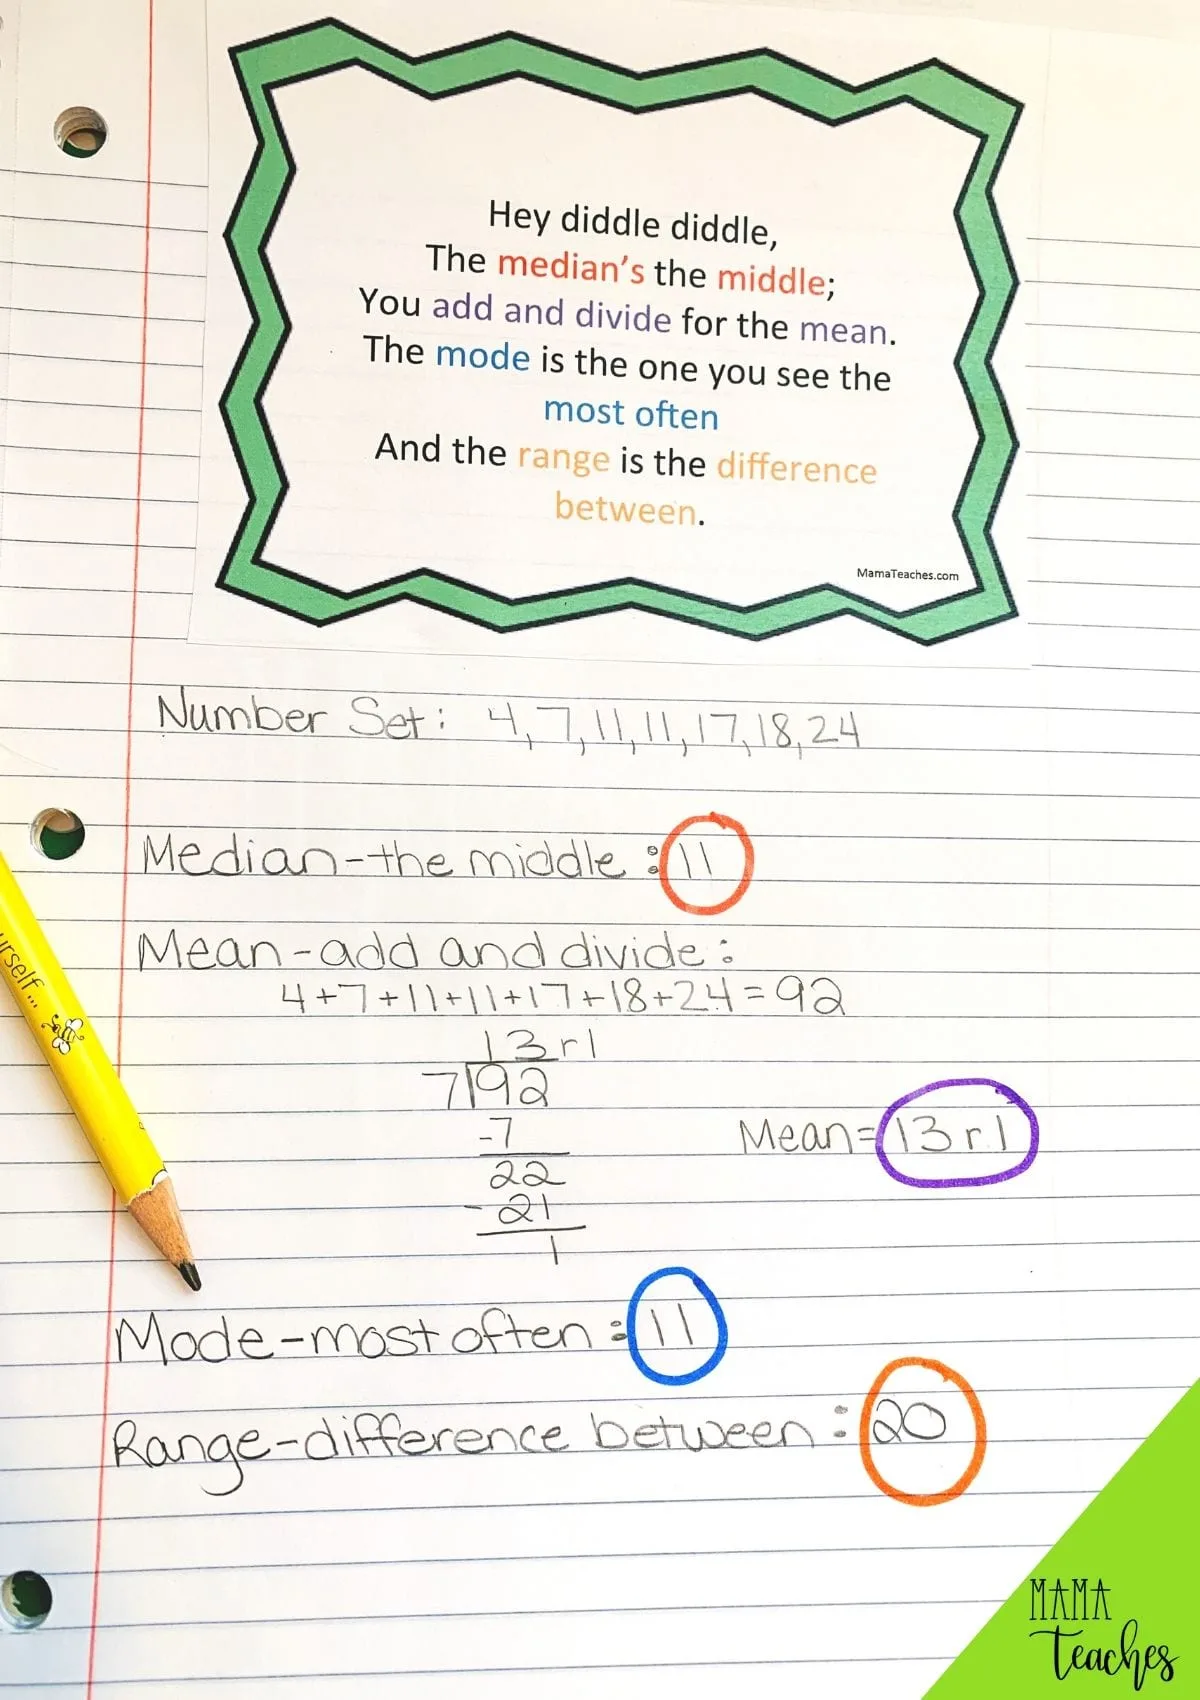 Hey diddle diddle,
The median's the middle;
You add and divide for the mean.
The mode is the one you see the
most often
And the range is the difference
between.
MamaTeaches.com
Number Set: 4, 7, 11, 11, 17, 18, 24
Median-the middle: 11
Mean-add and divide:
4+7+11+11+17+18+24=92
13 r1
7 92
-7
22
-21
1
Mean=13 r1
Mode-most often: 11
Range-difference between: 20
urself...
MAMA
Teaches